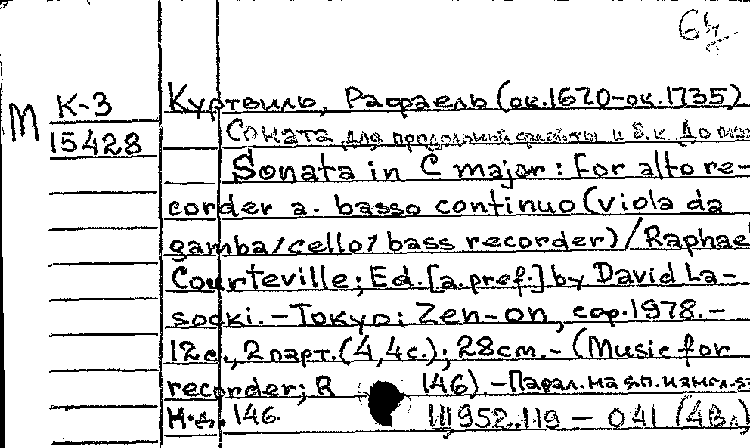 64
М К-3 Куртвиль, Рафаель (ок.1670-ок.1735)
15428 Соната для продольной флейты и б.к. До маж
Sonata in C major: For alto re-
corder a. basso continuo (viola da
gamba/cello/bass recorder)/Raphael
Courteville; Ed. [a.pref.] by David La-
socki. - Tokyo: Zen-on, cop.1978. -
12с., 2 парт. (4,4с.); 28cm. - (Music for
recorder; R 146). - Парал. на яп. и англ. яз
Н.д. 146. Ш952.119 - 041 (4Вл)